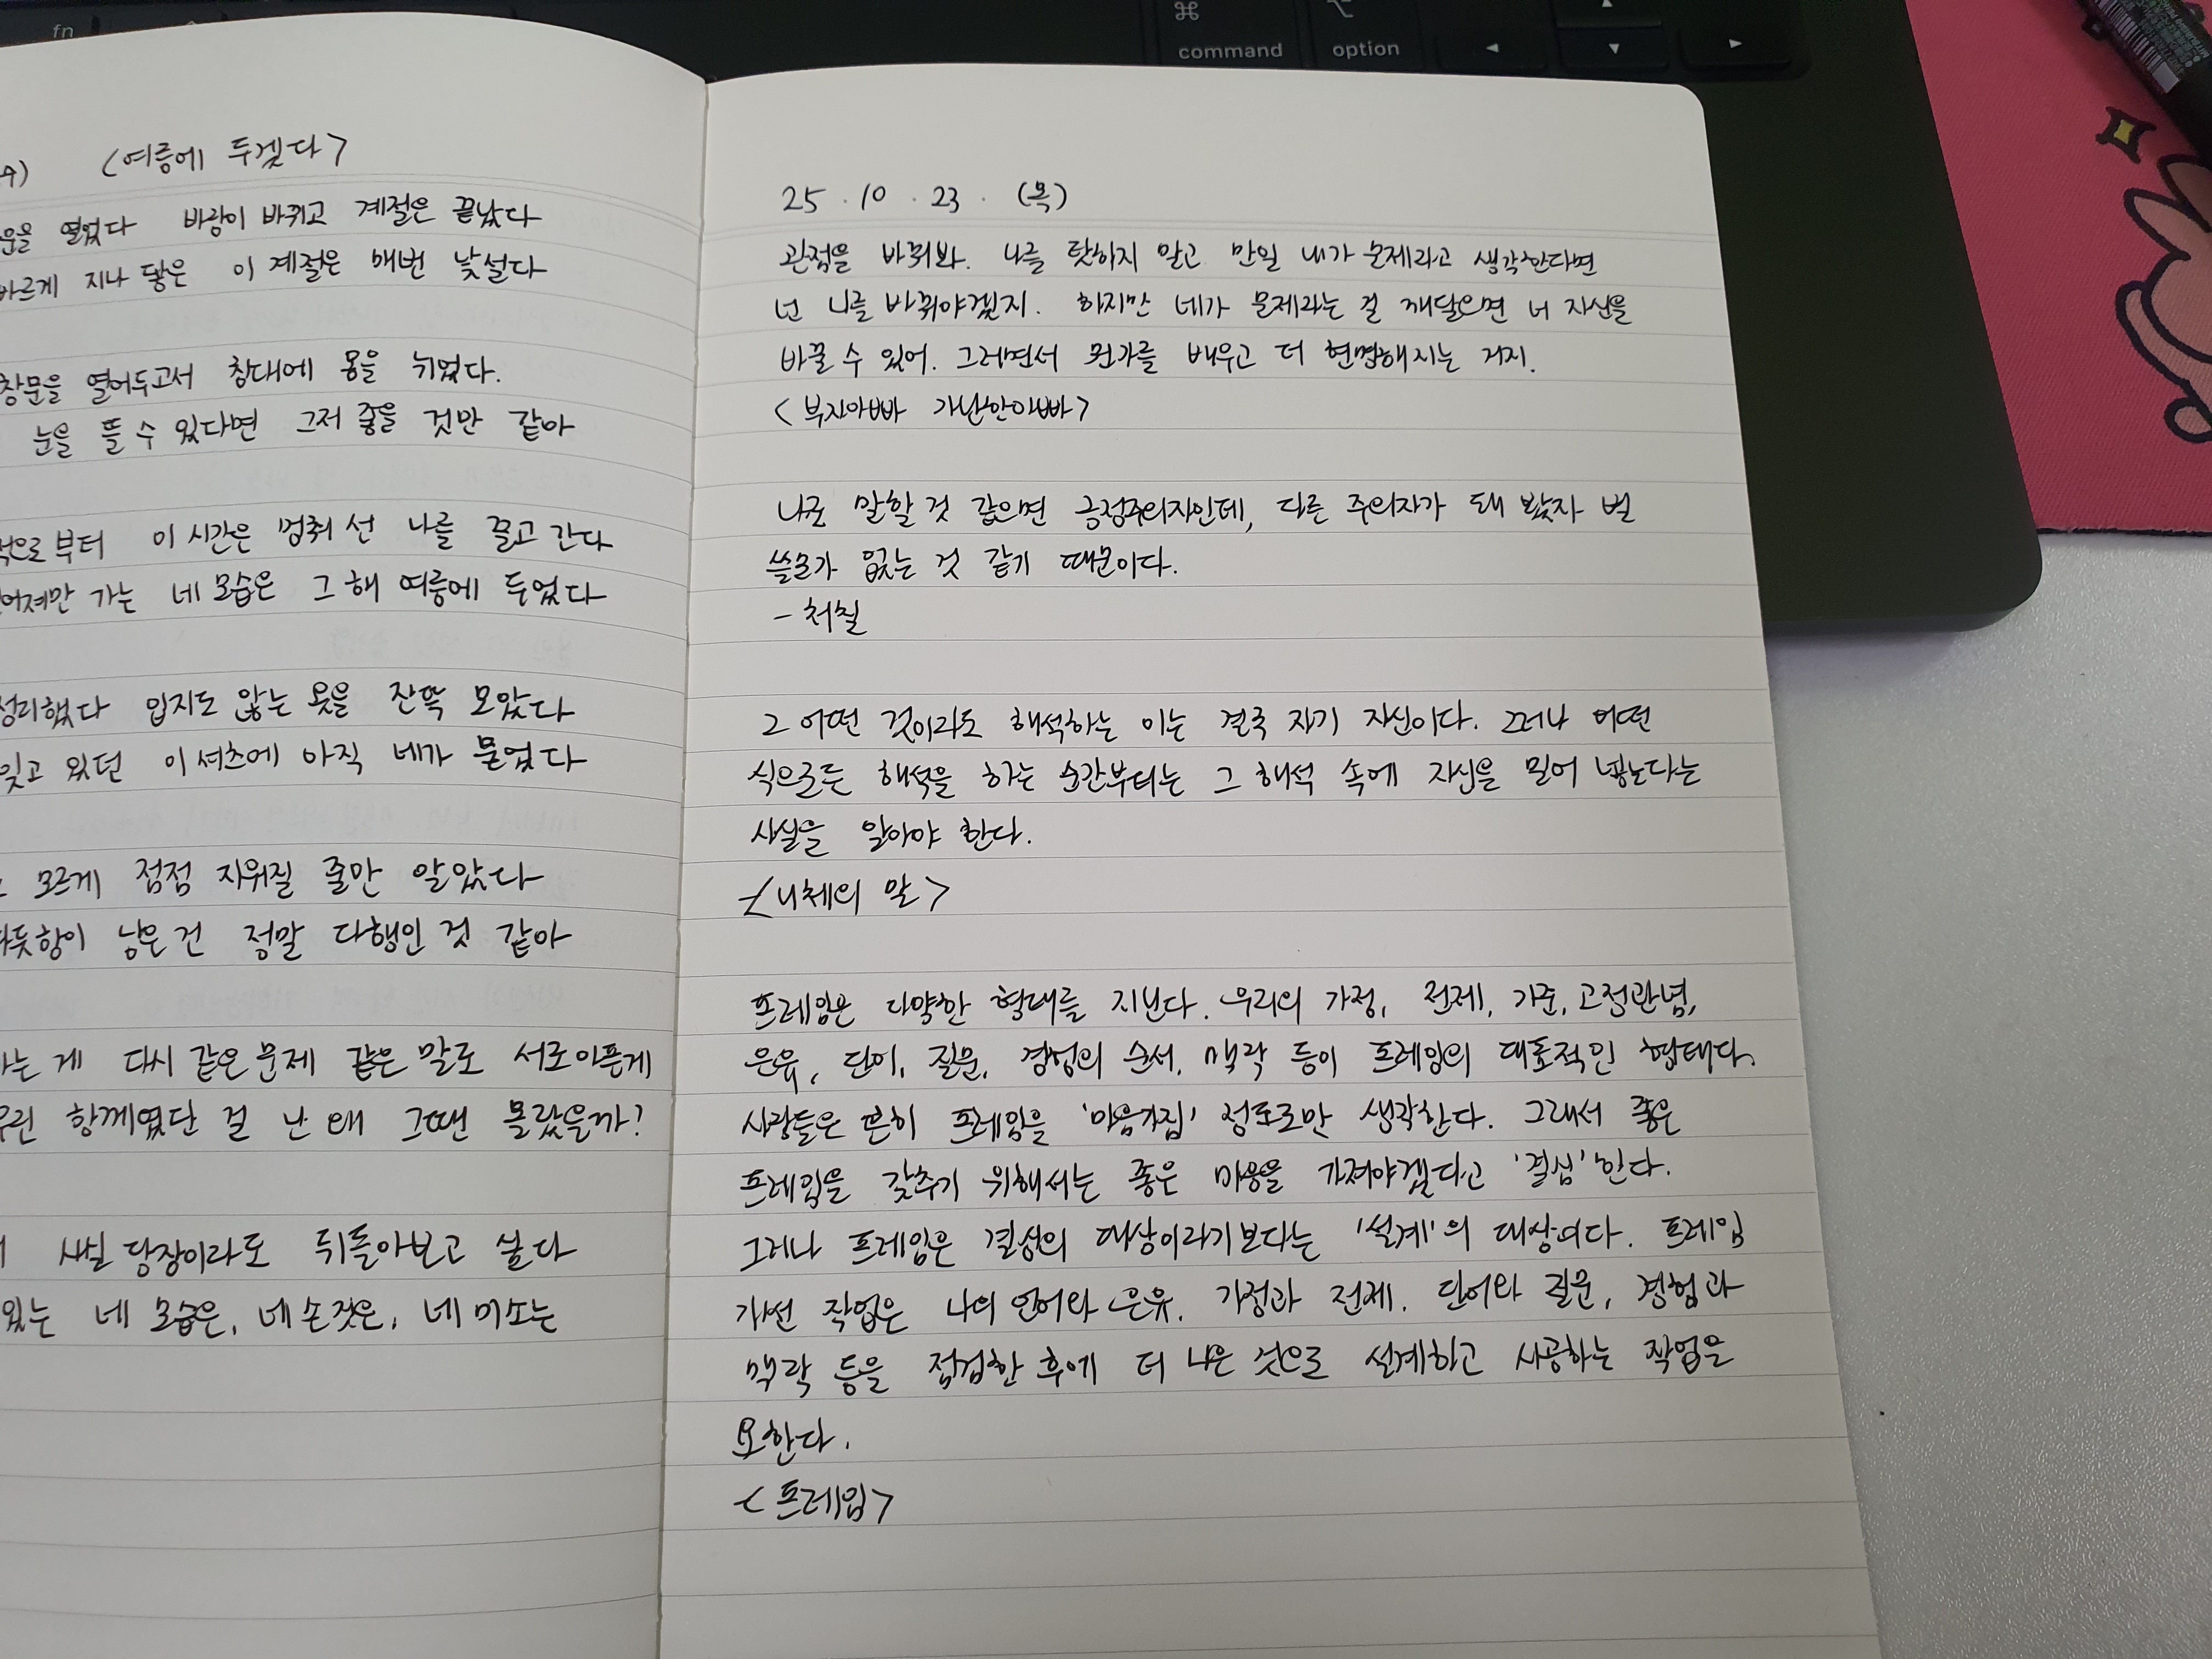 fn
command
option
<여름에 두겠다>
열었다 바람이 바뀌고 계절은 끝났다
지나 닿은 이 계절은 매번 낯설다
창문을 열어두고서 창대에 몸을 뉘었다.
눈을 뜰 수 있다면 그저 좋을 것만 같아
이 시간은 멈춰 선 나를 끌고 간다
가는 네 모습은 그 해 여름에 두었다
정리했다 입지도 않는 옷을 잔뜩 모았다
잊고 있던 이 셔츠에 아직 네가 묻었다
모르게 점점 지워질 줄만 알았다
남은 건 정말 다행인 것 같아
게 다시 같은 문제 같은 말로 서로 아픈 게
우린 함께였단 걸 난 왜 그땐 몰랐을까?
사실 당장이라도 뒤돌아보고 싶다
있는 네 모습은, 네 손짓은, 네 미소는
25. 10. 23. (목)
관점을 바꿔봐. 나를 탓하지 말고 만일 내가 문제라고 생각한다면
넌 나를 바꿔야겠지. 하지만 네가 문제라는 걸 깨달으면 너 자신을
바꿀 수 있어. 그러면서 뭔가를 배우고 더 현명해지는 거지.
<부자아빠 가난한아빠>
나로 말할 것 같으면 긍정주의자인데, 다른 주의자가 돼 봤자 별
쓸모가 없는 것 같기 때문이다.
- 처칠
그 어떤 것이라도 해석하는 이는 결국 자기 자신이다. 그러나 어떤
식으로든 해석을 하는 순간부터는 그 해석 속에 자신을 밀어 넣는다는
사실을 알아야 한다.
<니체의 말>
프레임은 다양한 형태를 지닌다. 우리의 가정, 전제, 기준, 고정관념,
은유, 단어, 질문, 경험의 순서, 맥락 등이 프레임의 대표적인 형태다.
사람들은 흔히 프레임을 '마음가짐' 정도로만 생각한다. 그래서 좋은
프레임을 갖추기 위해서는 좋은 마음을 가져야겠다고 '결심'한다.
그러나 프레임은 결심의 대상이라기보다는 '설계'의 대상이다. 프레임
개선 작업은 나의 언어와 은유, 가정과 전제, 단어와 질문, 경험과
맥락 등을 점검한 후에 더 나은 것으로 설계하고 시공하는 작업을
요한다.
<프레임>